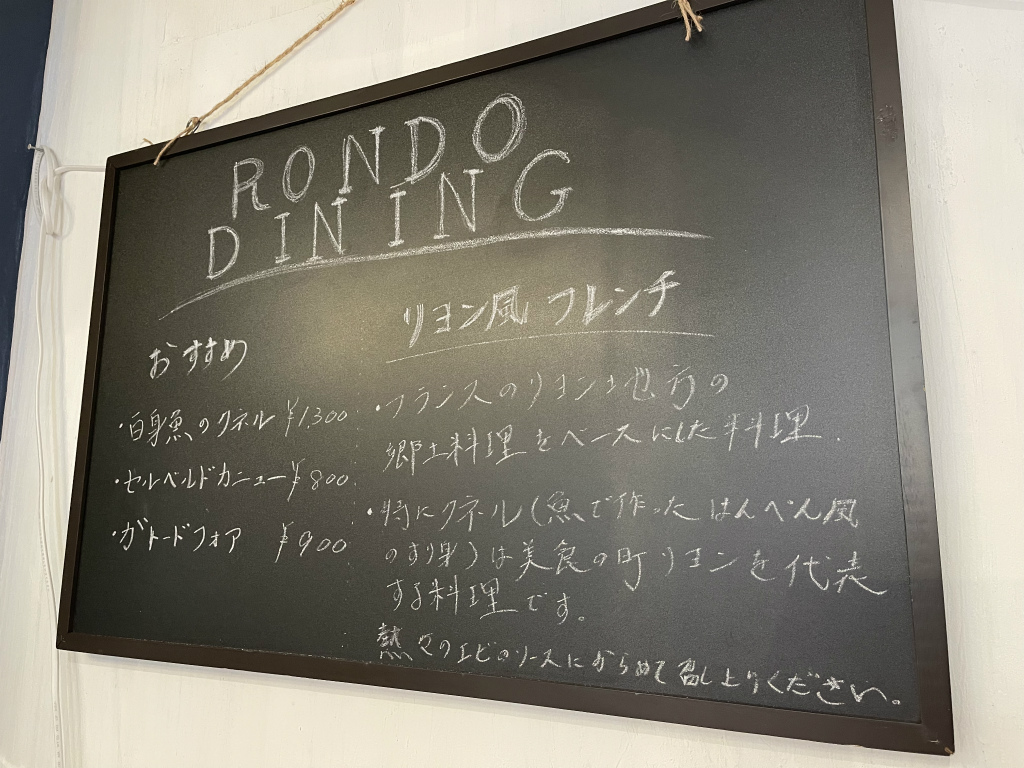 RONDO
DINING
おすすめ
・白身魚のクネル ¥1,300
・セルベルドカニュー ¥800
・ガトードフォア ¥900
リヨン風 フレンチ
・フランスのリヨン地方の
郷土料理をベースにした料理.
・特にクネル(魚で作ったはんぺん風
のすり身)は美食の町リヨンを代表
する料理です。
熱々のエビのソースにからめて召し上りください。